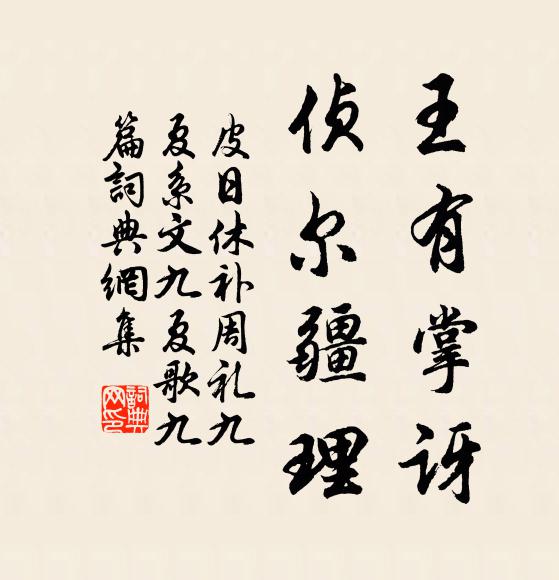 王有掌讶
侦尔疆理
皮日休补周礼九
夏系文九夏歌九
篇詞典網集
詞典
网印